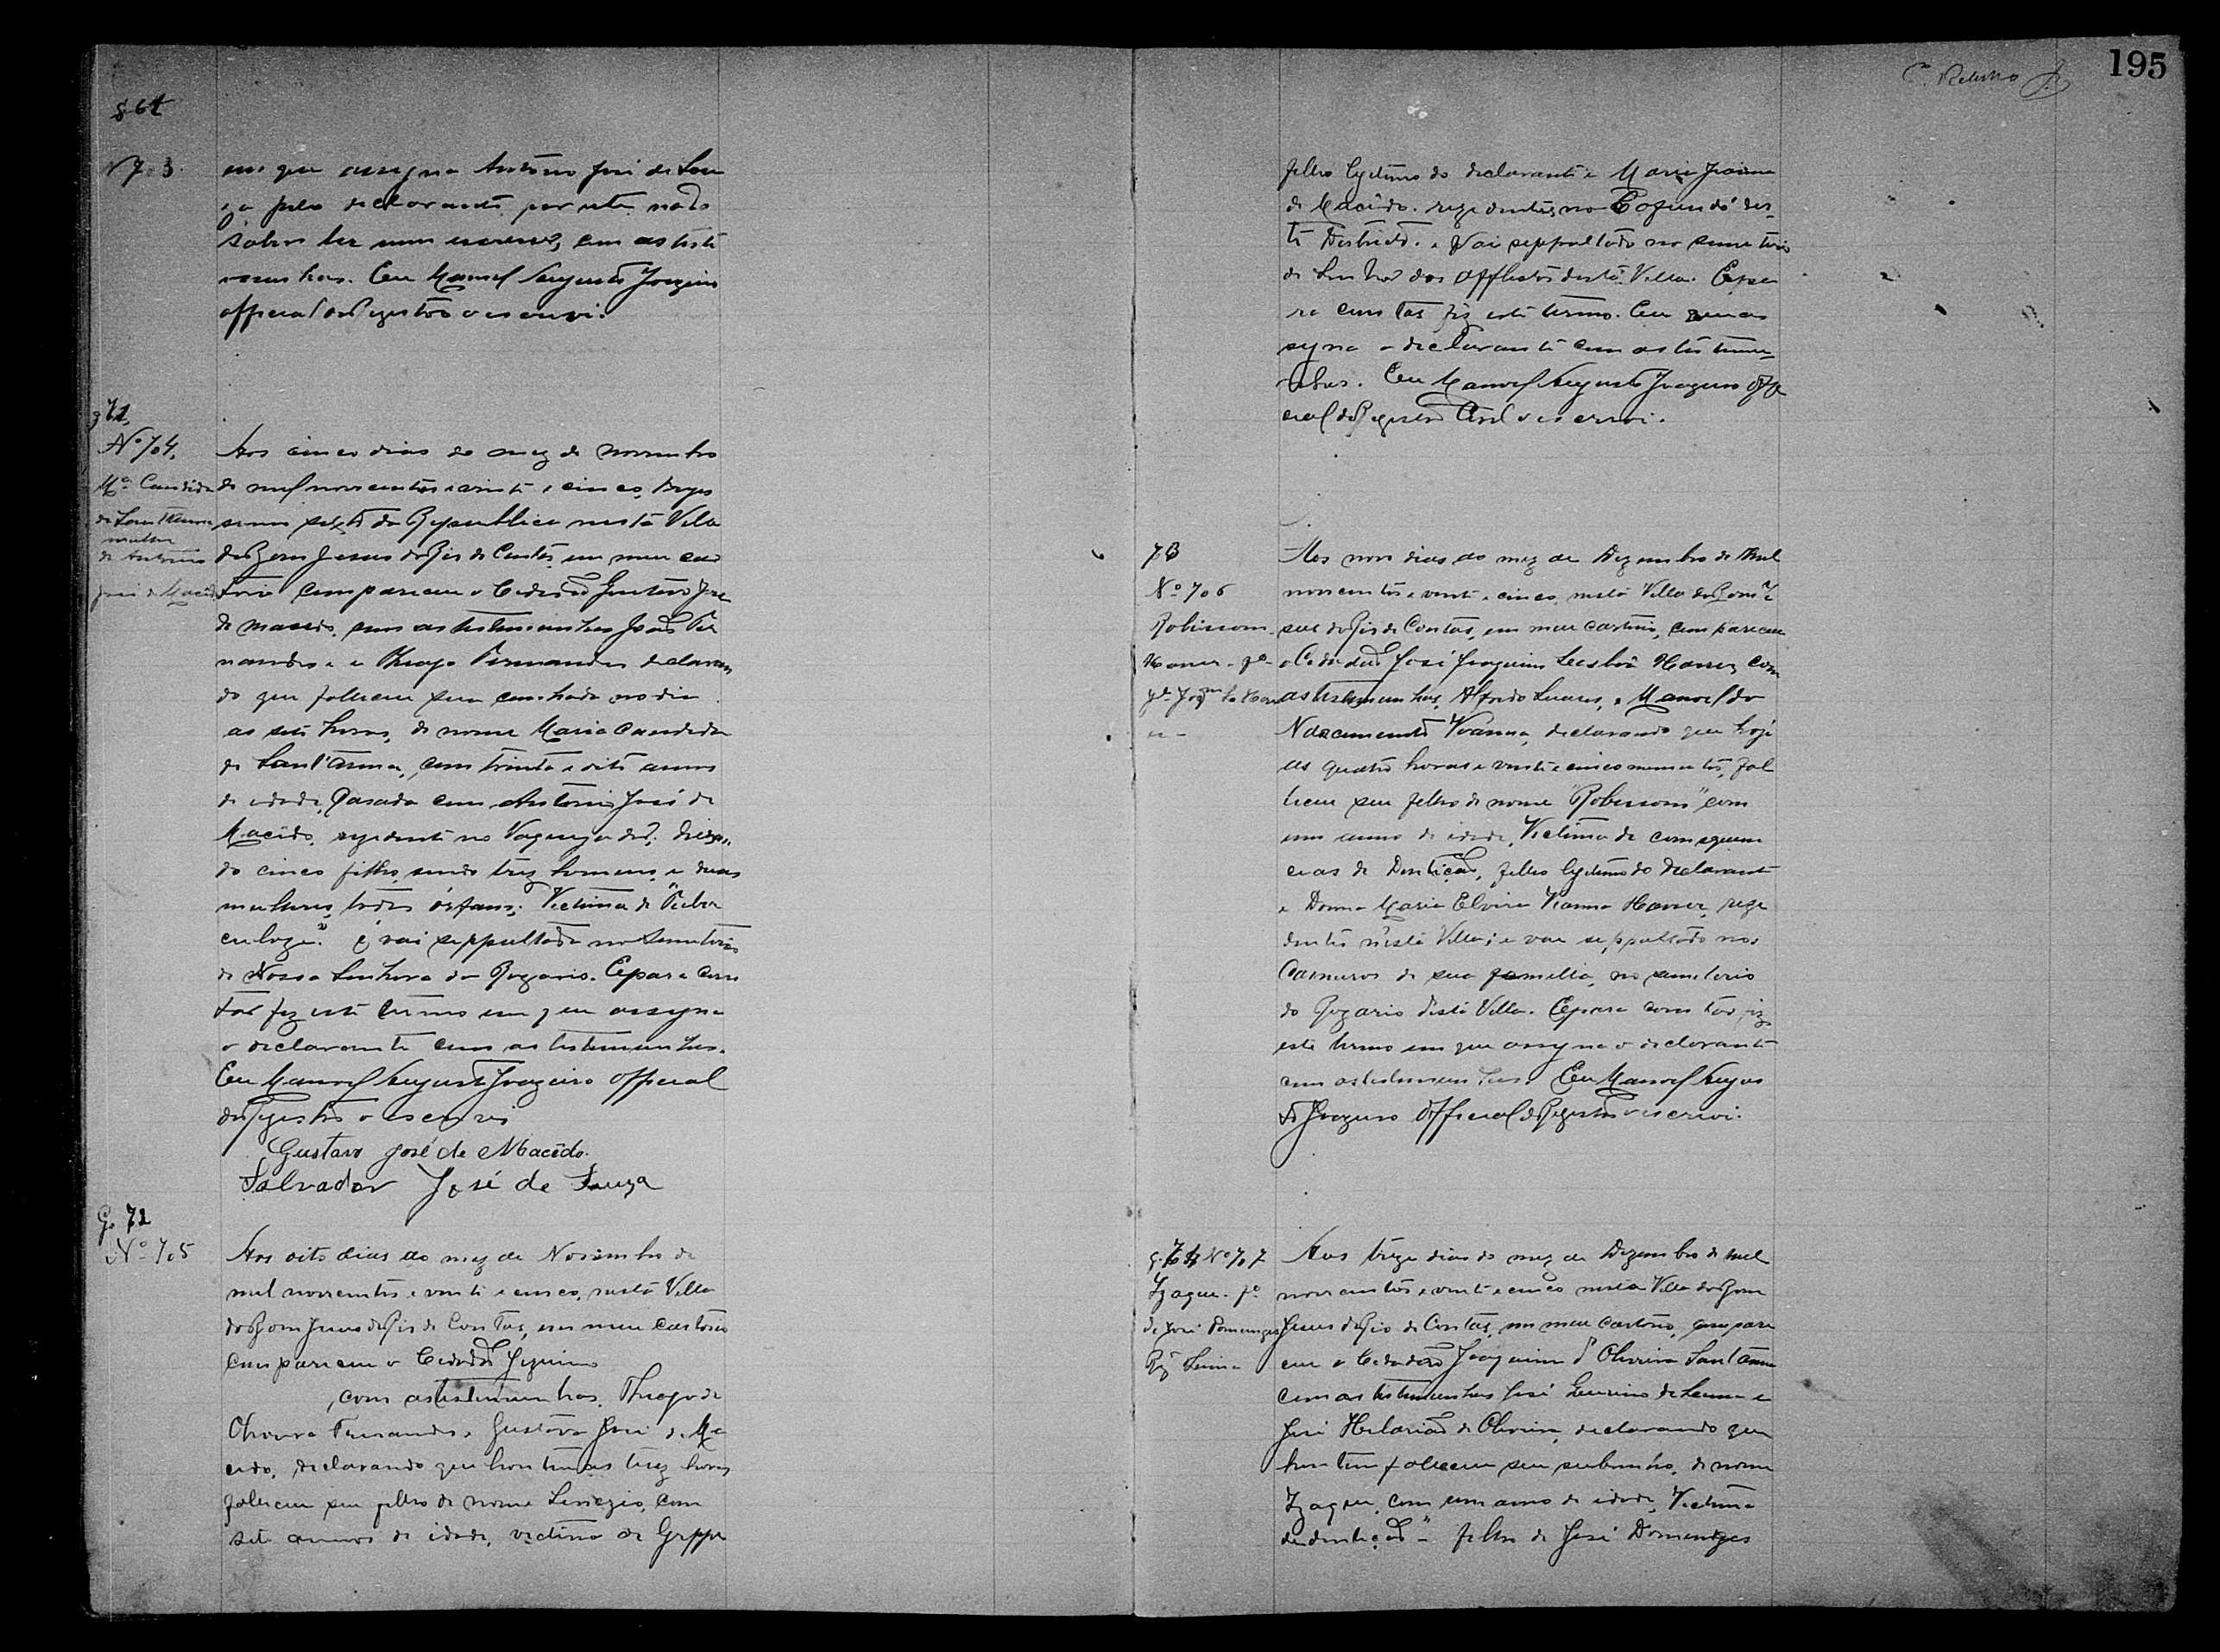 195
864
N 7 3.
em que assigna Antonio José de Sou
za pelo declarante por este não
saber ler nem escrever, com as teste
munhas. Eu Manoel Augusto Joazeiro
official do Registro o escrevi.
71
Nº 704.
Mª Candida
de Sant'Anna
mulher
de Antonio
José de Macêdo
Aos cinco dias do mez de novembro
de mil novecentos e vinte e cinco,
da Republica nesta Villa
do Bom Jesus do Rio de Contas, em meu car
torio compareceu o Cidadão Gustavo José
de Macedo, com as testemunhas João Fer
nandes e Thiago Fernandes declaran
do que falleceu sua cunhada no dia
as sete horas, de nome Maria Candida
de Sant'Anna, com trinta e oito annos
de idade, Casada com Antonio José de
Macêdo, rezidente no
do cinco filhos, sendo trez homens e duas
mulheres, todos órfaons; Victima de "Tuber
culoze" e vai seppultada no Semiterio
de Nossa Senhora do Rozario. E para cons
tar fiz este termo em que assigna
o declarante com as testemunhas.
Eu Manoel Augusto Joazeiro official
do Registro o escrevi
Gustavo José de Macêdo.
Salvador José de Souza
72
Nº 705
Aos oito dias do mez de Novembro de
mil novecentos e vinte e cinco, nesta Villa
do Bom Jesus do Rio de Contas, em meu Cartorio
compareceu o Cidadão
, com as testemunhas, Thiago de
Oliveira Fernandes, Gustavo José de Ma
cedo, declarando que hontem as trez horas
falleceu seu filho de nome, com
sete annos de idade, victima de Grippe
filho legitimo do declarante e Maria
de Macêdo. rezidentes no
te Destricto. e Vai seppultado no semiterio
do Senhor dos Afflictos desta Villa. E pa
ra constar fiz este termo. Em que as
signa o declarante com as testemu
nhas. Eu Manoel Augusto Joazeiro offi
cial do Registro Civil o escrevi.
73
Nº 706
Robisson
Aos nove dias do mez de Dezembro de mil
novecentos e vinte e cinco, nesta Villa do Bom Je
sus do Rio de Contas, em meu cartorio, compareceu
o Cidadão José Joaquim, com
as testemunhas, Alfredo Soares, e Manoel do
Nascimento Vianna, declarando que hoje
as quatro horas e vinte e cinco minutos, fal
leceu seu filho de nome "Robisson" com
um anno de idade, Victima de consequen
cias de Dentição, filho legitimo do declarante
e Donna Maria Elvira Vianna, rezi
dentes nesta Villa; e vai seppultado nos
Carneiros de sua familia, no semiterio
do Rozario desta Villa. E para constar, fiz
este termo em que assigna o declarante
com as testemunhas. Eu Manoel Augus
to Joazeiro Official do Registro o escrevi.
Nº 707
Izaque. fº
de José Domingos
Aos treze dias do mez de Dezembro de mil
novecentos e vinte e cinco nesta Villa do Bom
Jesus do Rio de Contas, em meu cartorio, compare
ceu o Cidadão Joaquim d'Oliveira Sant'Anna
com as testemunhas José
José Hilarião de Oliveira, declarando que
hontem falleceu seu sobrinho, de nome
Izaque, com um anno de idade, Victima
de dentição" filho de José Domingos